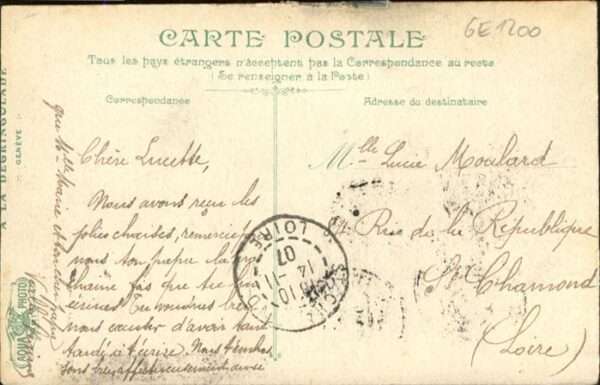 GE 1200
CARTE POSTALE
Tous les pays étrangers n'acceptent pas la Correspondance au recto
(Se renseigner à la Poste)
Correspondance
Adresse du destinataire
A LA DÉGRINGOLADE
GENÈVE
que Mlle Marie et ton
Chère Lucette,
Nous avons reçu les
jolies choises, remercie
nous ton
chaine fois que tu
écriras. Tu voudras
nous excuser d'avoir tant
tardé à t'écrire. Nous t'embras
sons très affectueusement
Mlle Lucie Moulard
Rue de la République
St Chamond
(Loire)
LOIRE
14 - 11
07
AQUA PHOTO